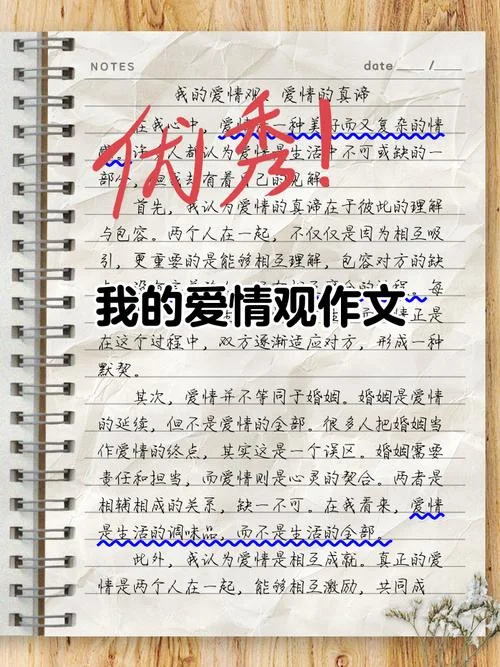 NOTES
date /
我的爱情观 爱情的真谛
优秀!
在我心中，爱情是一种美好而又复杂的情
人都认为爱情是生活中不可或缺的一
部分，但我却有着自己的见解
首先，我认为爱情的真谛在于彼此的理解
与包容。两个人在一起，不仅仅是因为相互吸
引，更重要的是能够相互理解，包容对方的缺
每
我的爱情观作文
正是
在这个过程中，双方逐渐适应对方，形成一种
默契。
其次，爱情并不等同于婚姻。婚姻是爱情
的延续，但不是爱情的全部。很多人把婚姻当
作爱情的终点，其实这是一个误区。婚姻需要
责任和担当，而爱情则是心灵的契合。两者是
相辅相成的关系，缺一不可。在我看来，爱情
是生活的调味品，而不是生活的全部。
此外，我认为爱情是相互成就。真正的爱
情是两个人在一起，能够相互激励，共同成